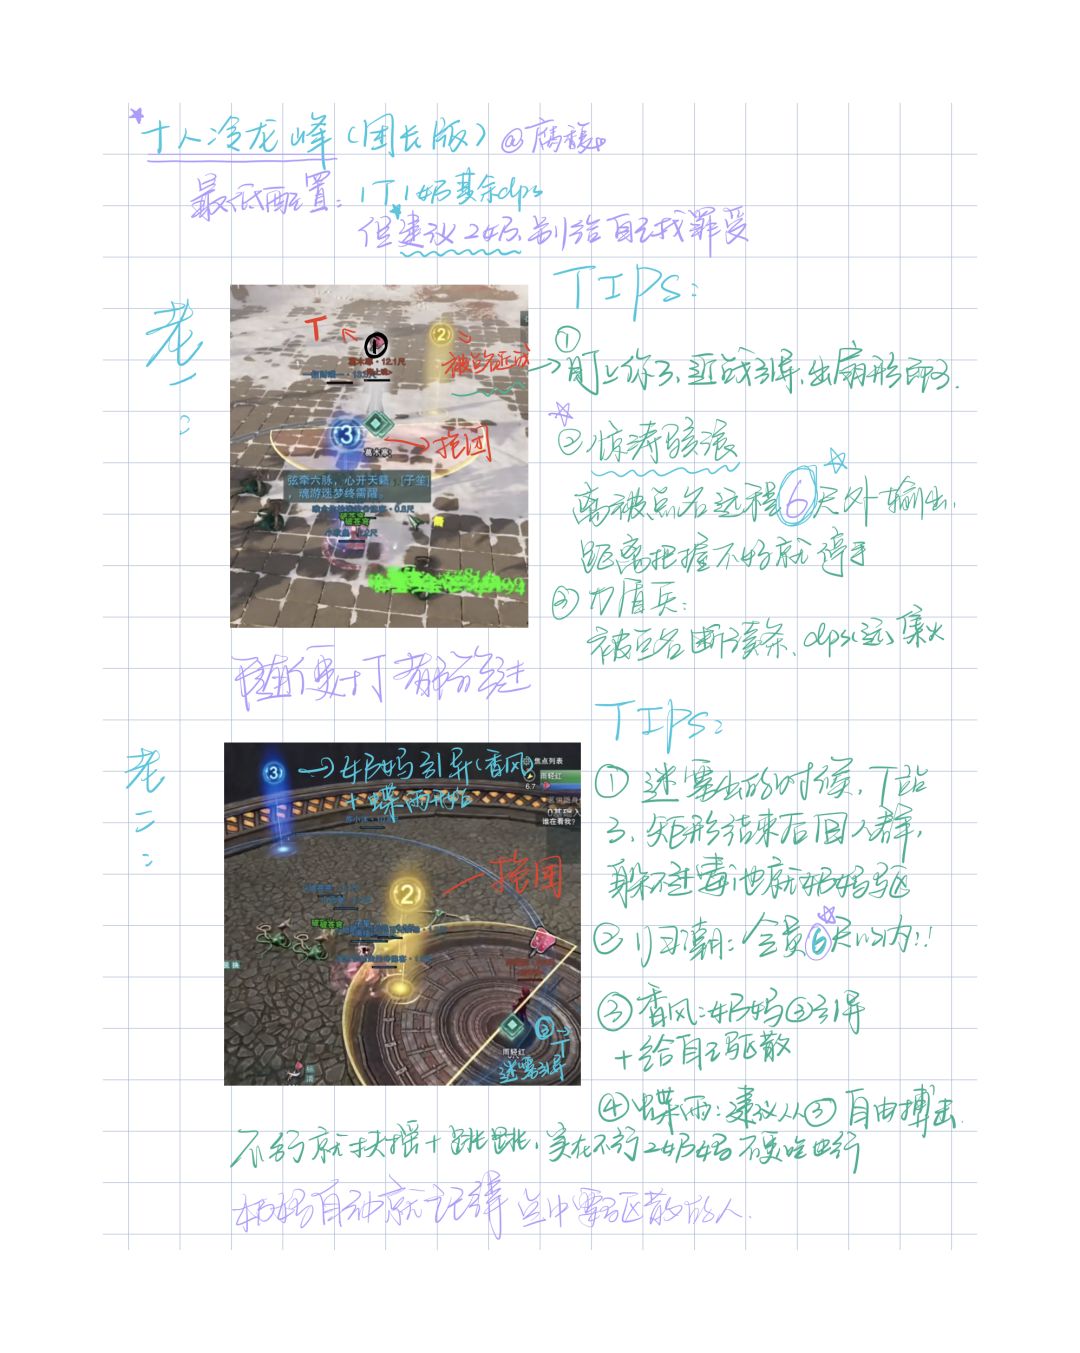 十人冷龙峰（团长版）@腐
最低配置：1T1奶其余dps
但建议2奶，别给自己找罪受
老一：
T
①
②
被点近战
③
拖团
葛木寒
弦牵六脉，心开天籁，[子笙]
，魂游迷梦终需醒。
随便打 都能过
TIPs：
①
→盯上你了，近战引导，出扇形即可.
②惊涛骇浪
离被点名远程6尺外输出，
距离把握不好就停手
③刀盾兵：
被点名断读条，dps(远)集火
老二：
③→奶妈引导(香风
+蝶雨形态
焦点列表
雨轻红
6.7
谁在看我？
②
拖团
雨轻红
②→T
迷雾引导
TIPs：
①迷雾出的时候，T站
3，矩形结束后回人群，
躲不过毒池就奶妈驱
②潮：全员6尺以内!!
③香风：奶妈③引导
+给自己驱散
④蝶雨：建议从③自由搏击.
不行就扶摇+跳跳，实在不行2奶妈不要吃也行
奶妈自动就记得点中要驱散的人.